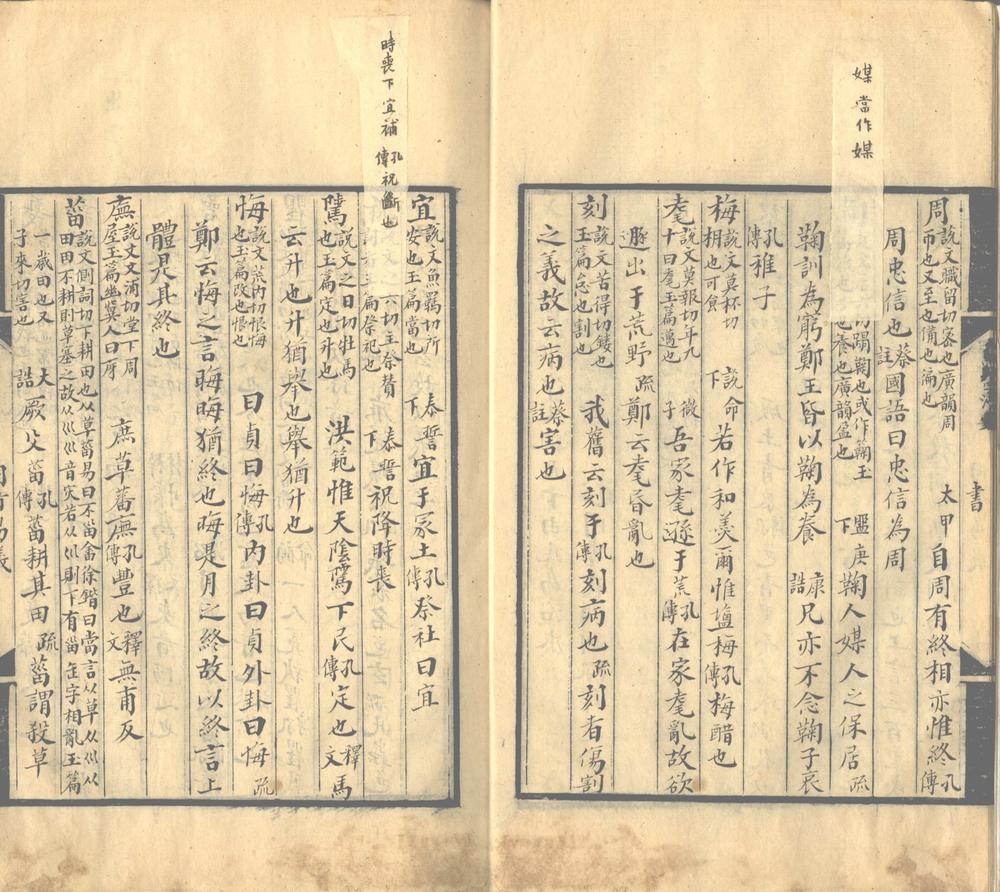 媒當作媒
書
周 說文職留切密也廣韻周帀也又至也備也徧也 太甲自周有終相亦惟終 孔傳
周忠信也 蔡註 國語曰忠信為周
切蹋鞠也或作鞫玉 也養也廣韻盈也 盤庚下 鞠人媒人之保居 疏
鞠訓為窮鄭王皆以鞠為養 康誥 兄亦不念鞠子哀
孔傳 稚子
梅 說文莫杯切柟也可食 說命下 若作和羹爾惟塩梅 孔傳 梅醋也
耄 說文莫報切年九十曰耄玉篇邁也 微子 吾家耄遜于荒 孔傳 在家耄亂故欲
遯出于荒野 疏 鄭云耄昏亂也
刻 說文苦得切鏤也玉篇也割也 我舊云刻子 孔傳 刻病也 疏 刻者傷割
之義故云病也 蔡註 害也
時喪下宜補 孔傳 祝斷也
宜 說文魚羈切所安也玉篇當也 泰誓下 宜于冢土 孔傳 祭社曰宜
六切主祭贊 篇祭祀也 泰誓下 祝降時喪
騭 說文之日切牡馬也玉篇定也升也 洪範惟天陰騭下民 孔傳 定也 釋文 馬
云升也升猶舉也舉猶升也
悔 說文荒內切恨悔也玉篇改也恨也 曰貞曰悔 孔傳 內卦曰貞外卦曰悔 疏
鄭云悔之言晦晦猶終也晦是月之終故以終言上
體是其終也
廡 說文文甫切堂下周屋玉篇幽冀人曰庌 庶草蕃廡 孔傳 豐也 釋文 無甫反
菑 說文側詞切下耕田也从草菑易曰不菑畬徐鍇曰當言从草从巛从田田不耕則草塞之故从巛巛音灾若从巛則下有甾缶字相亂玉篇
一歲田也又子來切害也 大誥 厥父菑 孔傳 菑耕其田 疏 菑謂殺草